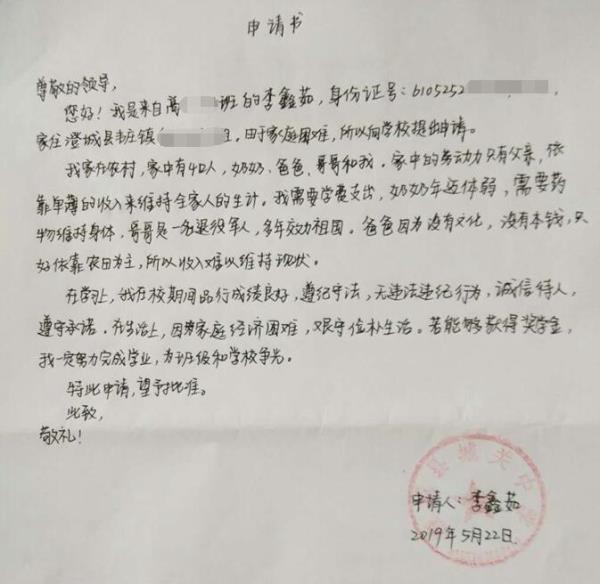 申请书
尊敬的领导,
您好!我是来自高 班的李鑫茹,身份证号:6105252
家住澄城县韦庄镇 由于家庭困难,所以向学校提出申请。
我家在农村,家中有4口人,奶奶、爸爸、哥哥和我。家中的劳动力只有父亲,依
靠单薄的收入来维持全家人的生计。我需要学费支出,奶奶年迈体弱,需要药
物维持身体,哥哥是一名退役军人,多年效力祖国。爸爸因为没有文化,没有本钱,只
好依靠农田为主,所以收入难以维持现状。
在学习上,我在校期间品行成绩良好,遵纪守法,无违法违纪行为,诚信待人,
遵守承诺。在生活上,因为家庭经济困难,艰守俭朴生活。若能够获得奖学金,
我一定努力完成学业,为班级和学校争光。
特此申请,望予批准。
此致,
敬礼!
县城关中
申请人:李鑫茹
2019年5月22日